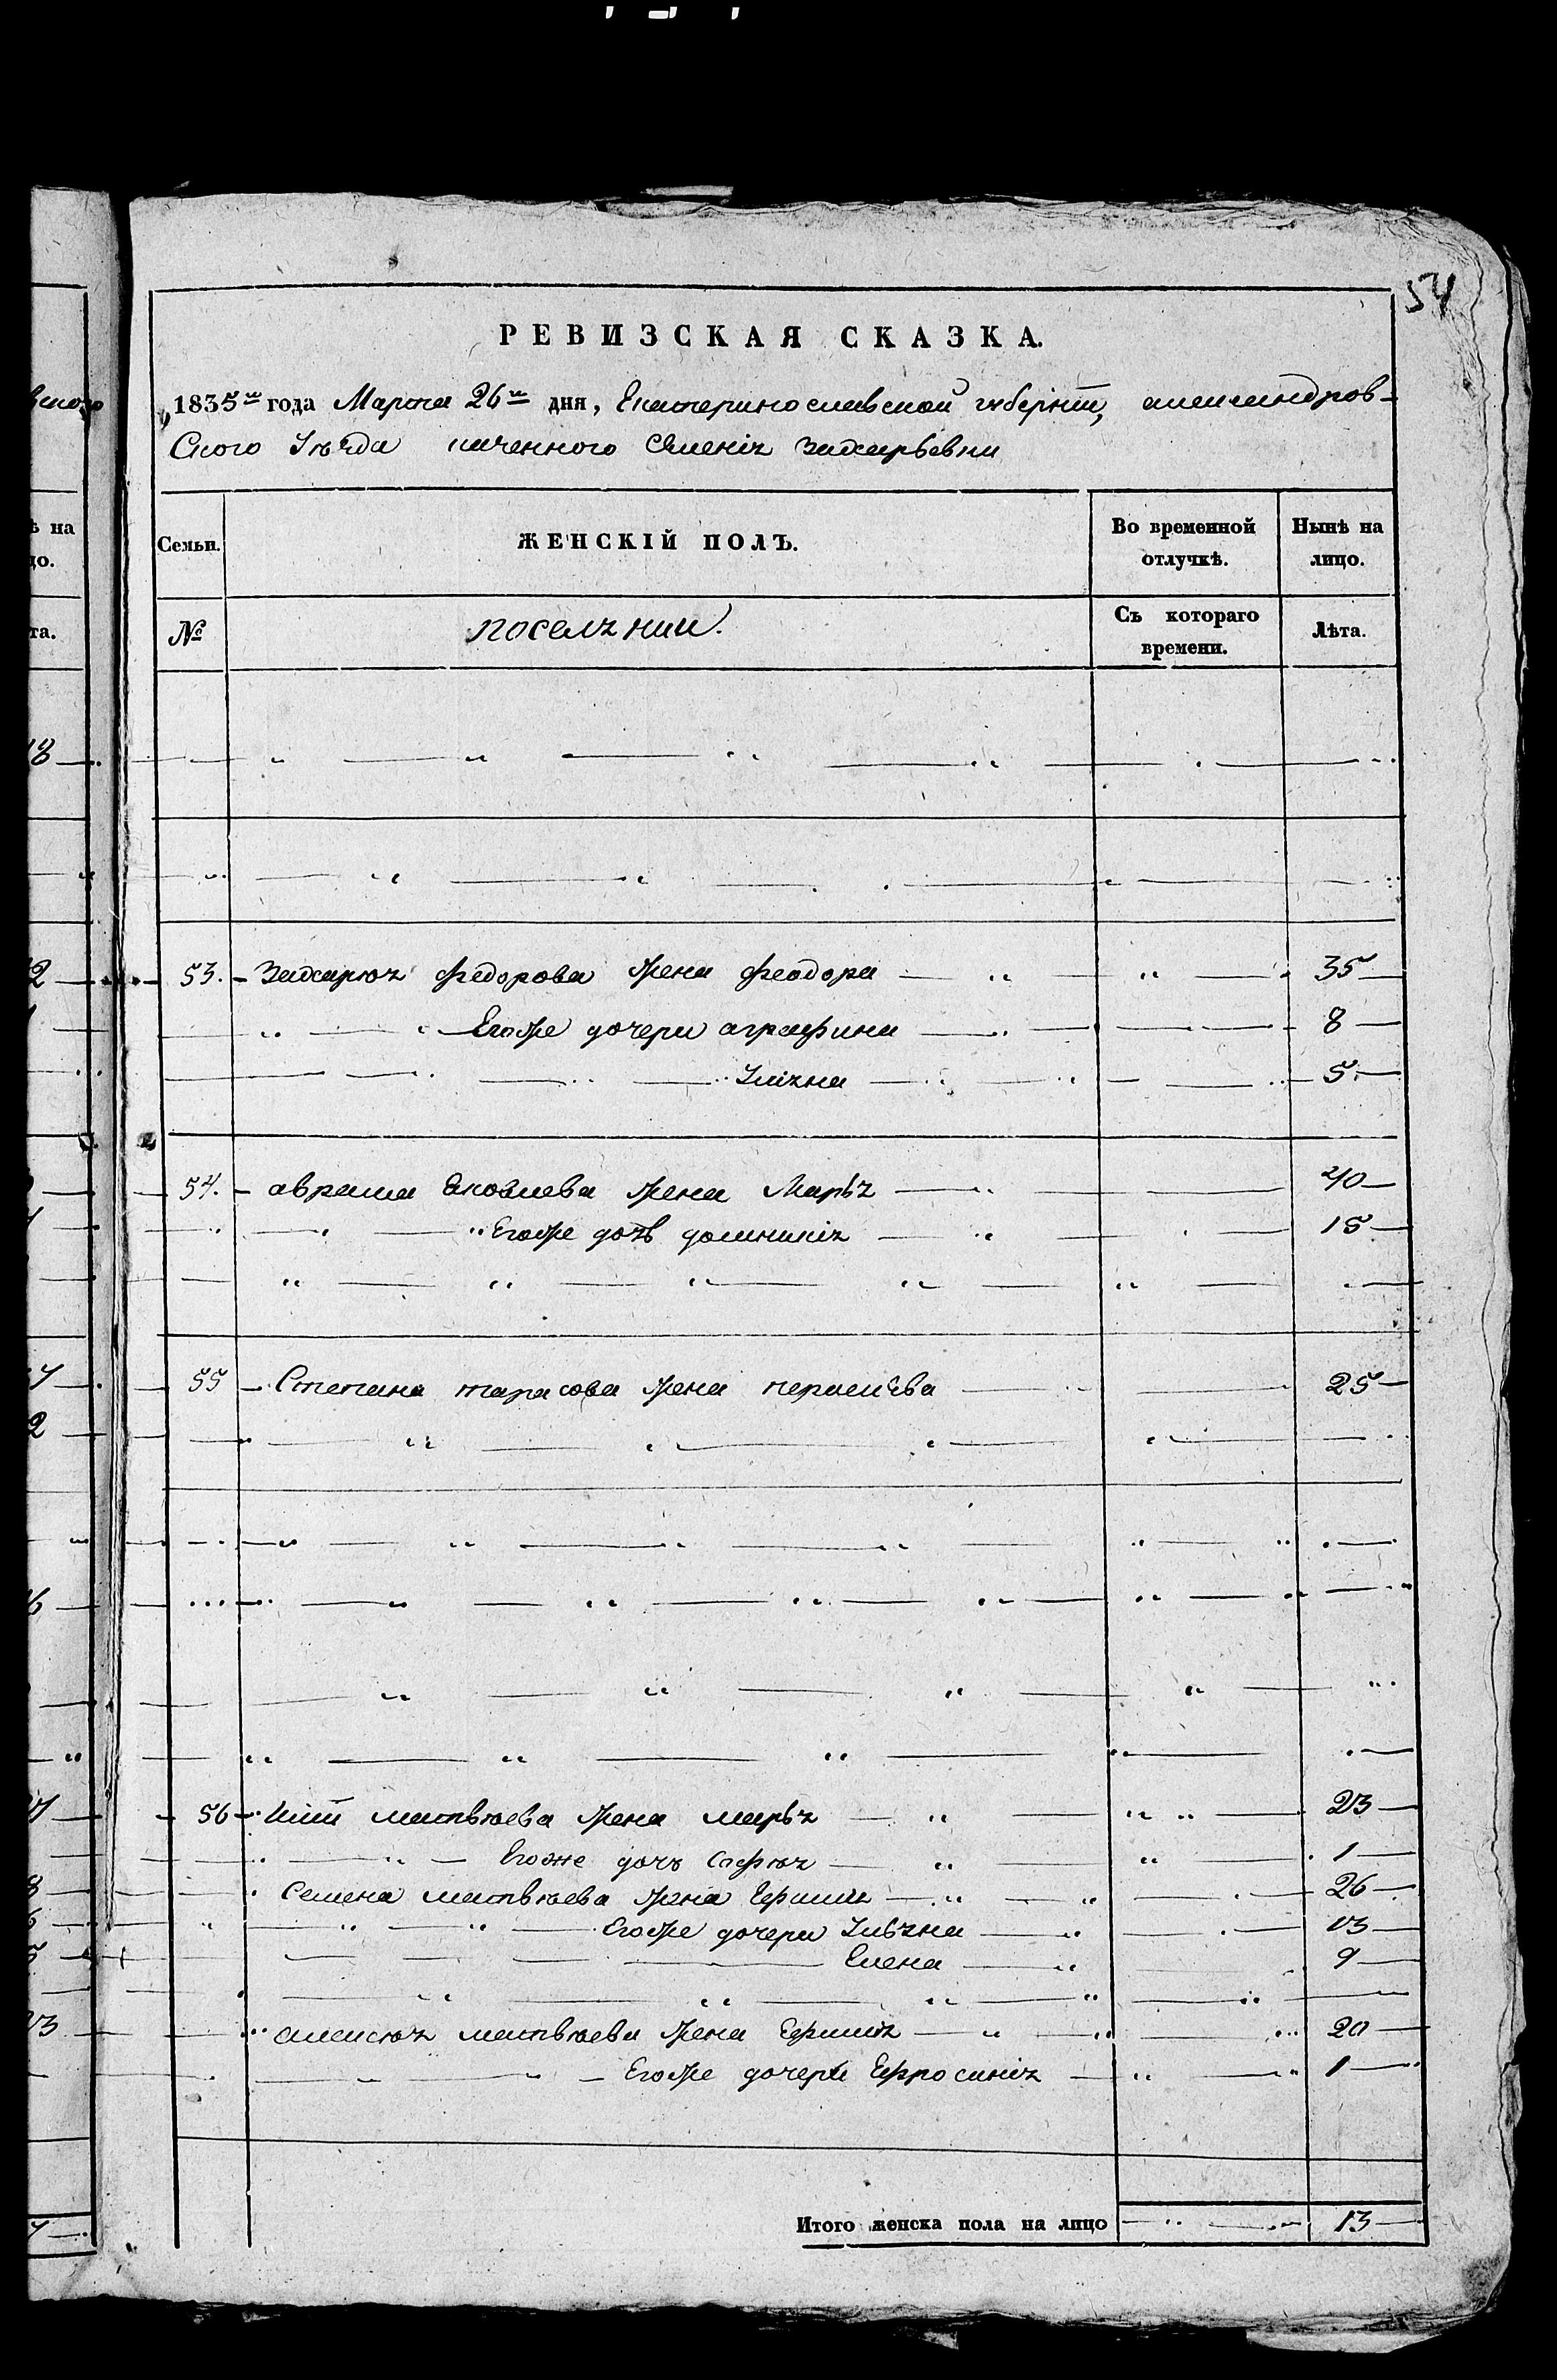 54
РЕВИЗСКАЯ СКАЗКА.
1835го года Марта 26го дня, Екатеринославской губерніи, александров-
Ского уезда казенного селенія Захарьевки
Семьи.
ЖЕНСКІЙ ПОЛЪ.
Во временной отлучкѣ.
Нынѣ на лицо.
№
поселяне.
Съ котораго времени.
Лѣта.
53. Захарія федорова жена феодора 35
Егоже дочери аграфина 8
Уліяна 5
54. аврама Яковлева жена Марья 40
Егоже дочь доминикія 15
55 Степана тарасова жена 25
56 матвѣева жена марья 23
Егоже дочь Софія 1
Семена матвѣева жена 26
Егоже дочери Ульяна 13
Елена 9
алексѣя матвѣева жена 20
Егоже дочери Ефросинія 1
Итого женска пола на лицо 13